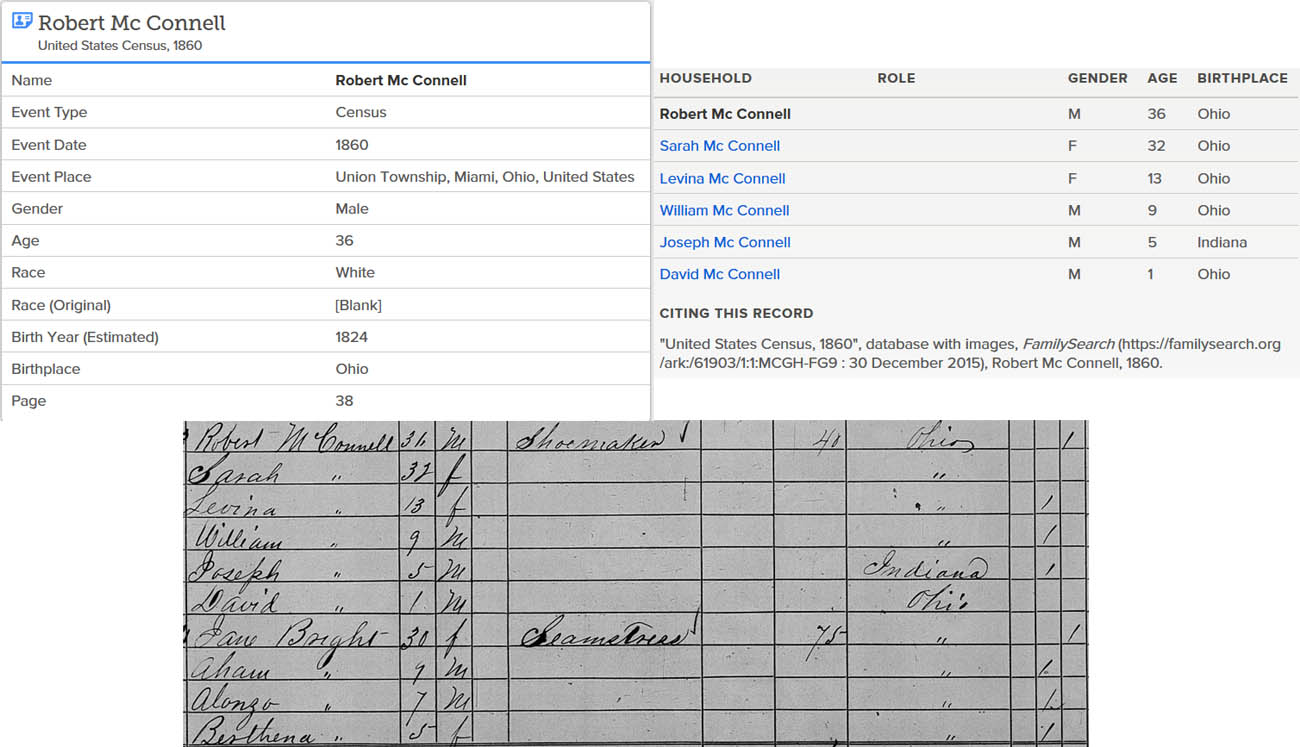 Robert Mc Connell
United States Census, 1860
Name Robert Mc Connell
Event Type Census
Event Date 1860
Event Place Union Township, Miami, Ohio, United States
Gender Male
Age 36
Race White
Race (Original) [Blank]
Birth Year (Estimated) 1824
Birthplace Ohio
Page 38
HOUSEHOLD ROLE GENDER AGE BIRTHPLACE
Robert Mc Connell M 36 Ohio
Sarah Mc Connell F 32 Ohio
Levina Mc Connell F 13 Ohio
William Mc Connell M 9 Ohio
Joseph Mc Connell M 5 Indiana
David Mc Connell M 1 Ohio
CITING THIS RECORD
"United States Census, 1860", database with images, FamilySearch (https://familysearch.org
/ark:/61903/1:1:MCGH-FG9 : 30 December 2015), Robert Mc Connell, 1860.
Robert McConnell 36 M Shoemaker 40 Ohio 1
Sarah " 32 f "
Levina " 13 f " 1
William " 9 M " 1
Joseph " 5 M Indiana 1
David " 1 M Ohio
Jane Bright 30 f Seamstress 75 " 1
" 9 M " 1
Alonzo " 7 M " 1
Berthena " 5 f " 1